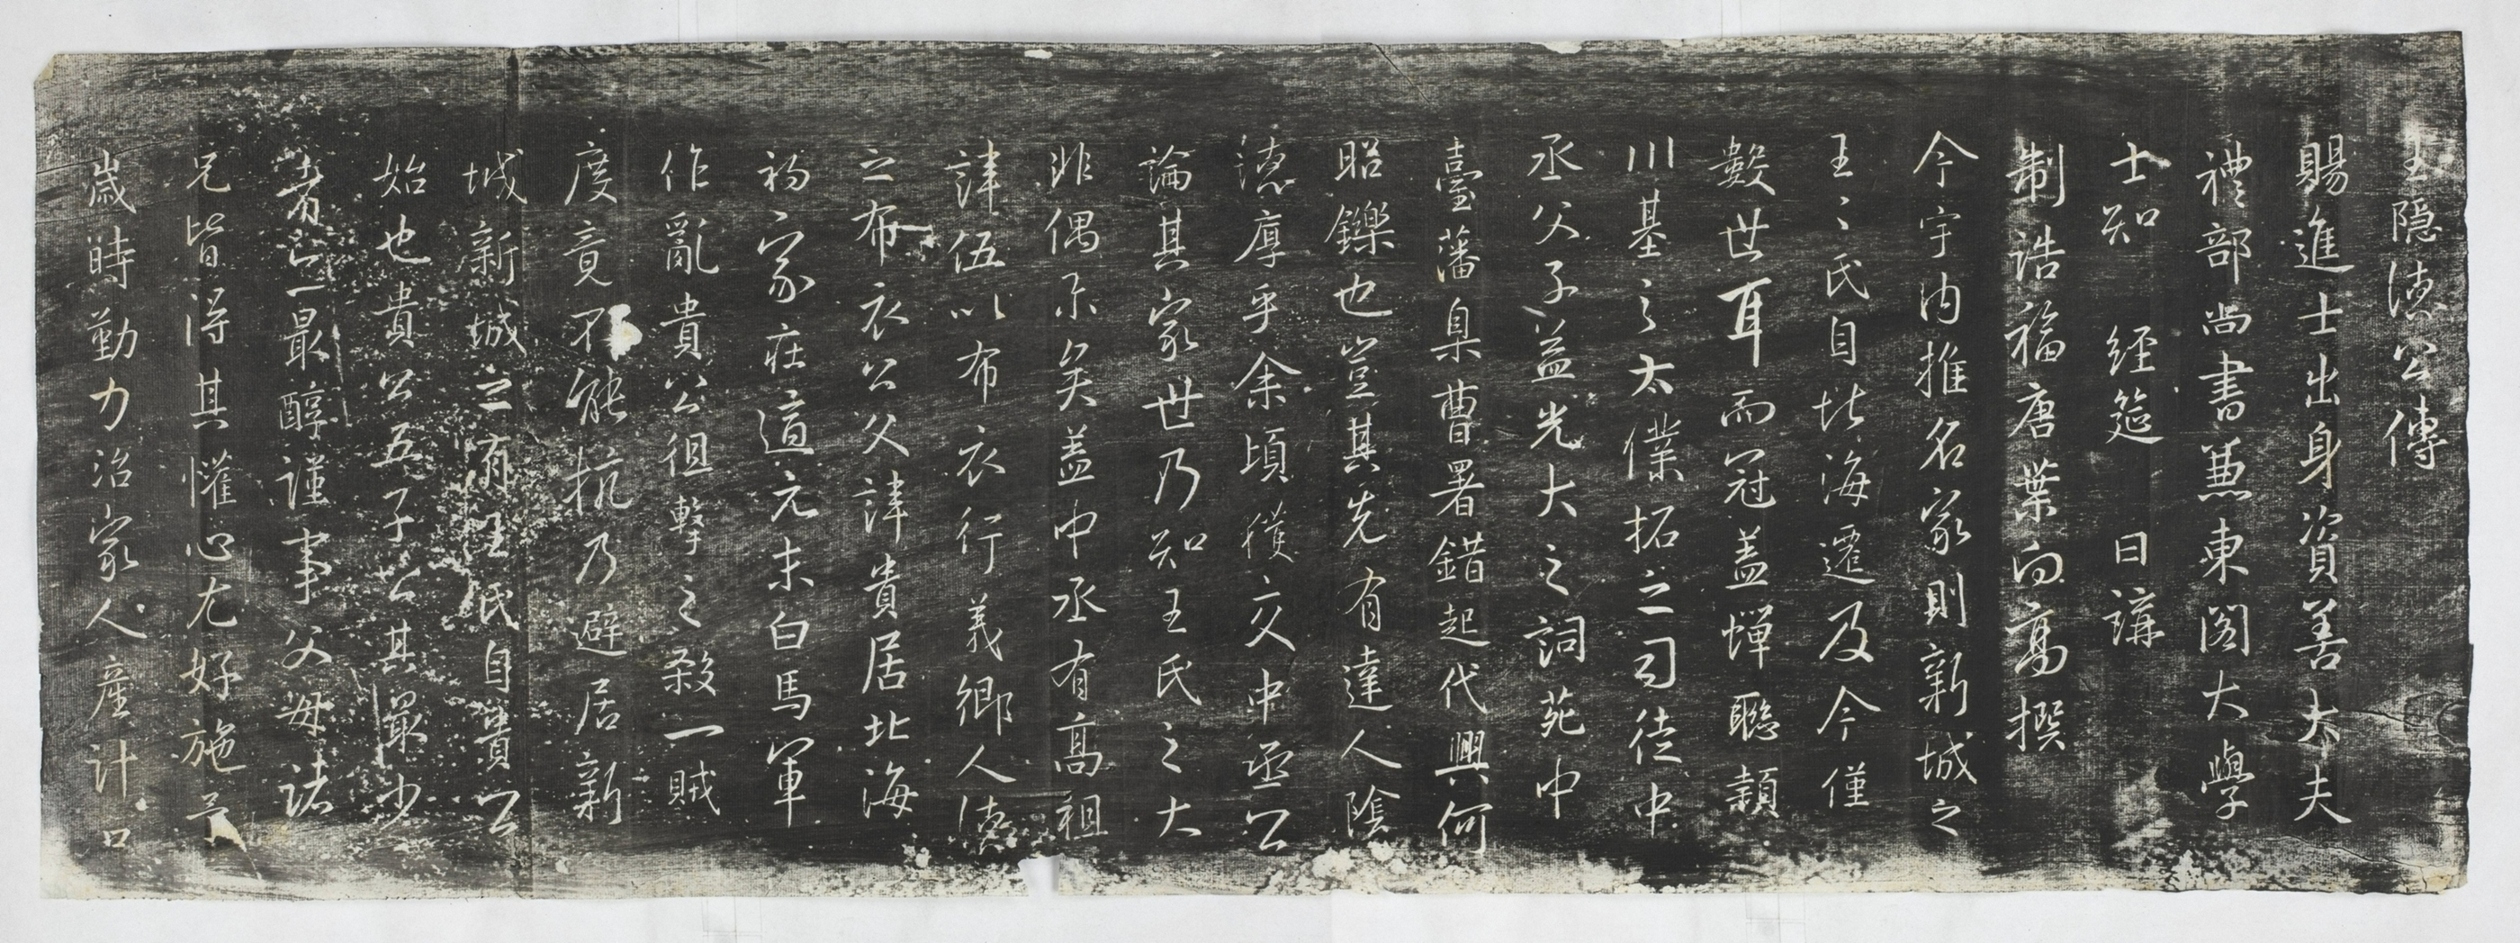 王隱德公傳
賜進士出身資善大夫
禮部尚書兼東閣大學
士知 經筵 日講
制誥福唐葉向高撰
今宇內推名家則新城之
王王氏自北海遷及今僅
數世耳而冠蓋蟬聯穎
川基之太僕拓之司徒中
丞父子益光大之詞苑中
臺藩臬曹署錯起代興何
昭鑠也豈其先有達人陰
德厚乎余頃獲交中丞公
論其家世乃知王氏之大
非偶尔矣蓋中丞有高祖
諱伍以布衣行義鄉人德
之布衣公父諱貴居北海
初家在道元末白馬軍
作亂貴公徂擊之殺一賊
度竟不能抗乃避居新
城新城之有王氏自貴公
始也貴公五子公其最少
者公最醇謹事父母諸
兄皆得其懽心尤好施予
歲時勤力治家人產計口